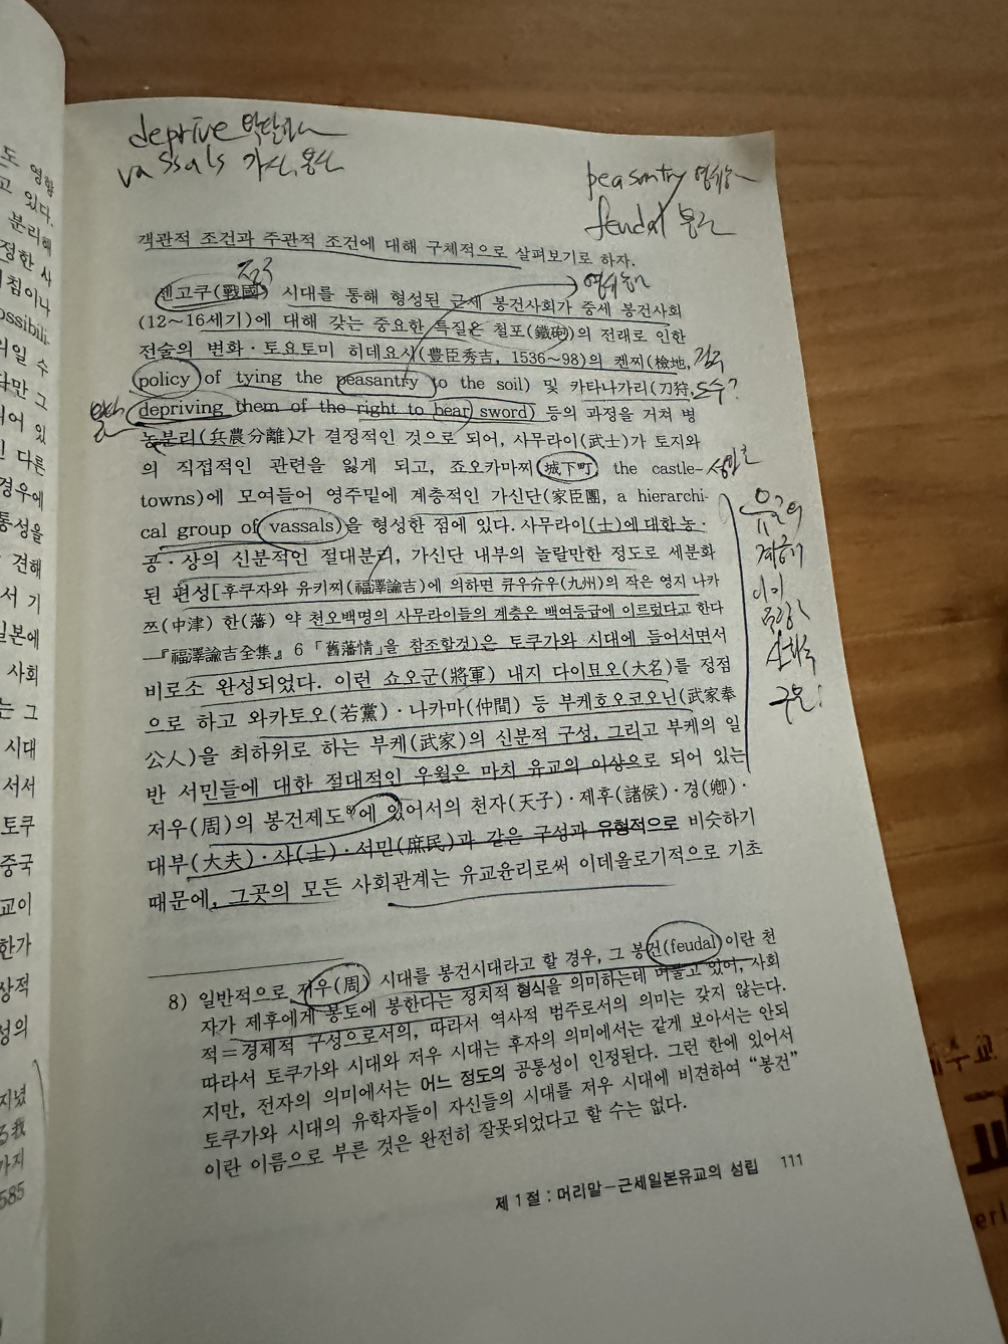 deprive 박탈하다
vassals 가신, 봉신
peasantry
feudal 봉건
객관적 조건과 주관적 조건에 대해 구체적으로 살펴보기로 하자.
전국
센고쿠(戰國) 시대를 통해 형성된 근세 봉건사회가 중세 봉건사회
(12～16세기)에 대해 갖는 중요한 특질은 철포(鐵砲)의 전래로 인한
전술의 변화·토요토미 히데요시(豐臣秀吉, 1536～98)의 켄찌(檢地,
policy of tying the peasantry to the soil) 및 카타나가리(刀狩,
depriving them of the right to bear sword) 등의 과정을 거쳐 병
농분리(兵農分離)가 결정적인 것으로 되어, 사무라이(武士)가 토지와
의 직접적인 관련을 잃게 되고, 죠오카마찌(城下町, the castle-
towns)에 모여들어 영주밑에 계층적인 가신단(家臣團, a hierarchi-
cal group of vassals)을 형성한 점에 있다. 사무라이(士)에 대한 농·
공·상의 신분적인 절대분리, 가신단 내부의 놀랄만한 정도로 세분화
된 편성[후쿠자와 유키찌(福澤諭吉)에 의하면 큐우슈우(九州)의 작은 영지 나카
쯔(中津) 한(藩) 약 천오백명의 사무라이들의 계층은 백여등급에 이르렀다고 한다
—『福澤諭吉全集』 6 「舊藩情」을 참조할것)은 토쿠가와 시대에 들어서면서
비로소 완성되었다. 이런 쇼오군(將軍) 내지 다이묘오(大名)를 정점
으로 하고 와카토오(若黨)·나카마(仲間) 등 부케호오코오닌(武家奉
公人)을 최하위로 하는 부케(武家)의 신분적 구성, 그리고 부케의 일
반 서민들에 대한 절대적인 우월은 마치 유교의 이상으로 되어 있는
저우(周)의 봉건제도⁸⁾에 있어서의 천자(天子)·제후(諸侯)·경(卿)·
대부(大夫)·사(士)·서민(庶民)과 같은 구성과 유형적으로 비슷하기
때문에, 그곳의 모든 사회관계는 유교윤리로써 이데올로기적으로 기초
8) 일반적으로 저우(周) 시대를 봉건시대라고 할 경우, 그 봉건(feudal)이란 천
자가 제후에게 봉토에 봉한다는 정치적 형식을 의미하는데 머물고 있어, 사회
적＝경제적 구성으로서의, 따라서 역사적 범주로서의 의미는 갖지 않는다.
따라서 토쿠가와 시대와 저우 시대는 후자의 의미에서는 같게 보아서는 안되
지만, 전자의 의미에서는 어느 정도의 공통성이 인정된다. 그런 한에 있어서
토쿠가와 시대의 유학자들이 자신들의 시대를 저우 시대에 비견하여 “봉건”
이란 이름으로 부른 것은 완전히 잘못되었다고 할 수는 없다.
제 1 절 : 머리말－근세일본유교의 성립 111